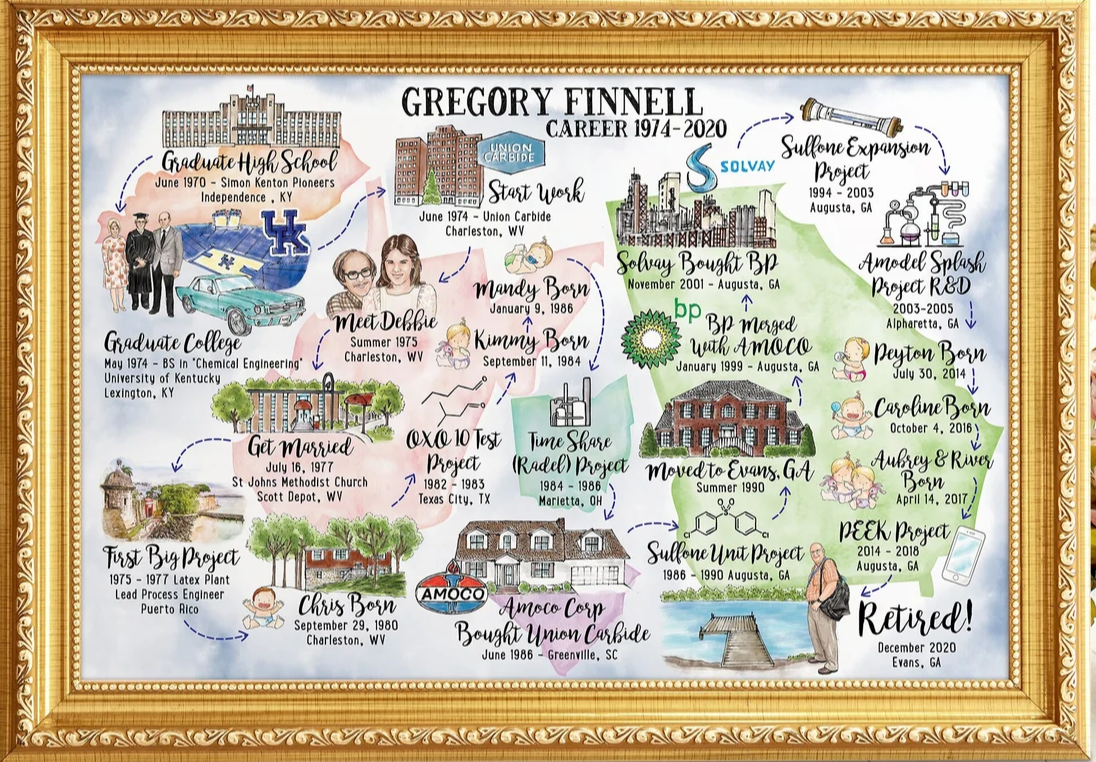 GREGORY FINNELL
CAREER 1974-2020
Graduate High School
June 1970 - Simon Kenton Pioneers
Independence , KY
UK
Graduate College
May 1974 - BS in "Chemical Engineering"
University of Kentucky
Lexington, KY
UNION
CARBIDE
Start Work
June 1974 - Union Carbide
Charleston, WV
Meet Debbie
Summer 1975
Charleston, WV
Get Married
July 16, 1977
St Johns Methodist Church
Scott Depot, WV
First Big Project
1975 - 1977 Latex Plant
Lead Process Engineer
Puerto Rico
Chris Born
September 29, 1980
Charleston, WV
OXO 10 Test
Project
1982 - 1983
Texas City, TX
Kimmy Born
September 11, 1984
Mandy Born
January 9, 1986
Time Share
(Radel) Project
1984 - 1986
Marietta, OH
AMOCO
Amoco Corp
Bought Union Carbide
June 1986 - Greenville, SC
Sulfone Unit Project
1986 - 1990 Augusta, GA
O O
S
Cl Cl
Moved to Evans, GA
Summer 1990
bp
BP Merged
With AMOCO
January 1999 - Augusta, GA
Solvay Bought BP
November 2001 - Augusta, GA
SOLVAY
Sulfone Expansion
Project
1994 - 2003
Augusta, GA
Amodel Splash
Project R&D
2003-2005
Alpharetta, GA
Peyton Born
July 30, 2014
Caroline Born
October 4, 2016
Aubrey & River
Born
April 14, 2017
PEEK Project
2014 - 2018
Augusta, GA
Retired!
December 2020
Evans, GA